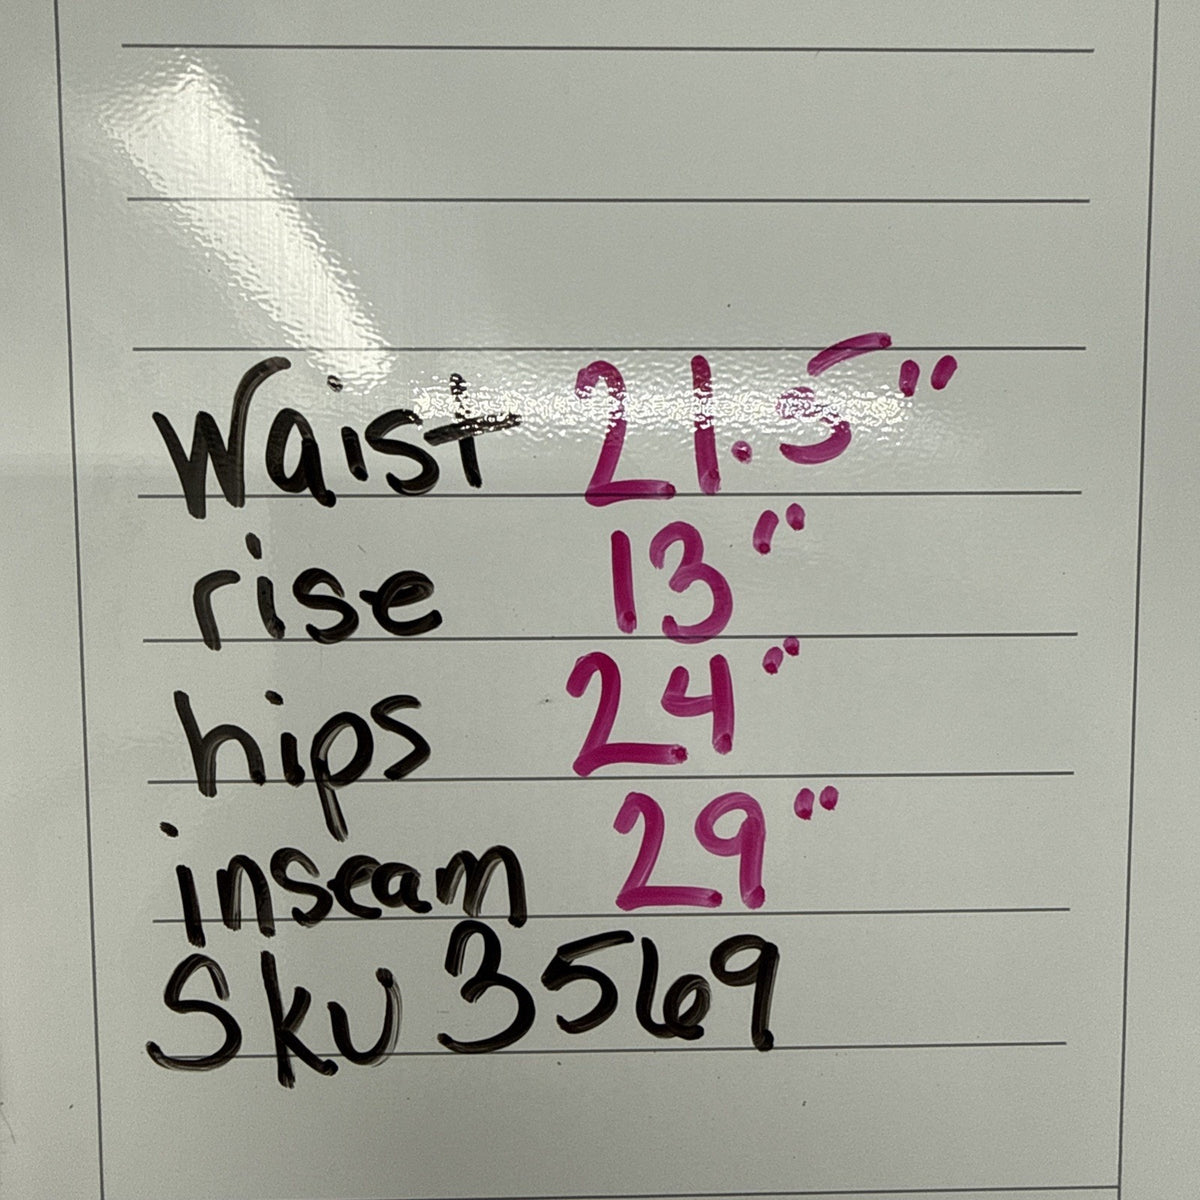 Waist 21.5"
rise 13"
hips 24"
inseam 29"
Sku 3569